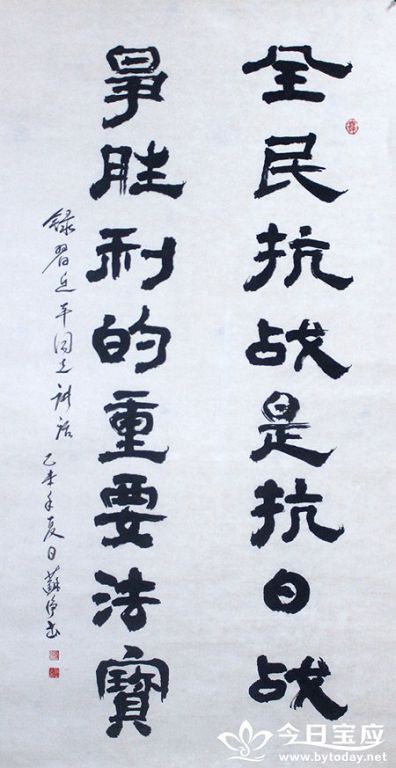 全民抗战是抗日战
爭胜利的重要法寶
録習近平同志讲话 乙未年夏日 蘇书
今日宝应
www.bytoday.net